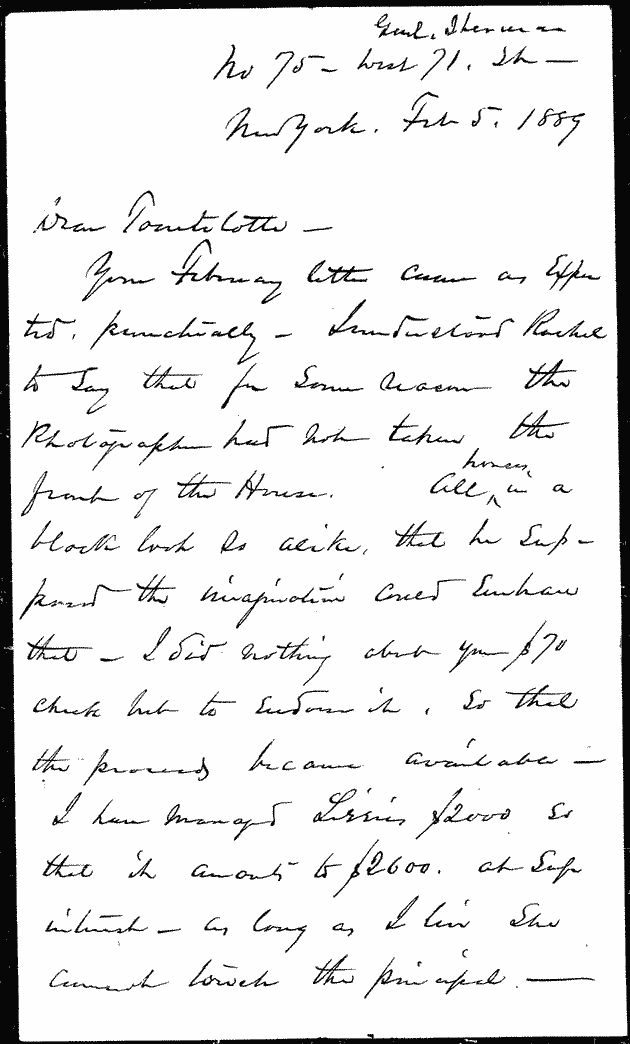 Genl. Sherman
No 75 - West 71. St -
New York. Feb 5. 1889
Dear Tourtelotte -
Your February letter came as Expec
ted, punctually - I understood Rachel
to say that for some reason the
Photographer had not taken the
front of the House. All houses in a
block look so alike, that he sup-
posed the imagination could Embrace
that - I did nothing about your $70
check but to Endorse it, so that
the proceeds became available -
I have managed Lizzie's $2000 so
that it amounts to $2600. at 5 up
interest - as long as I live She
cannot touch the principal. -